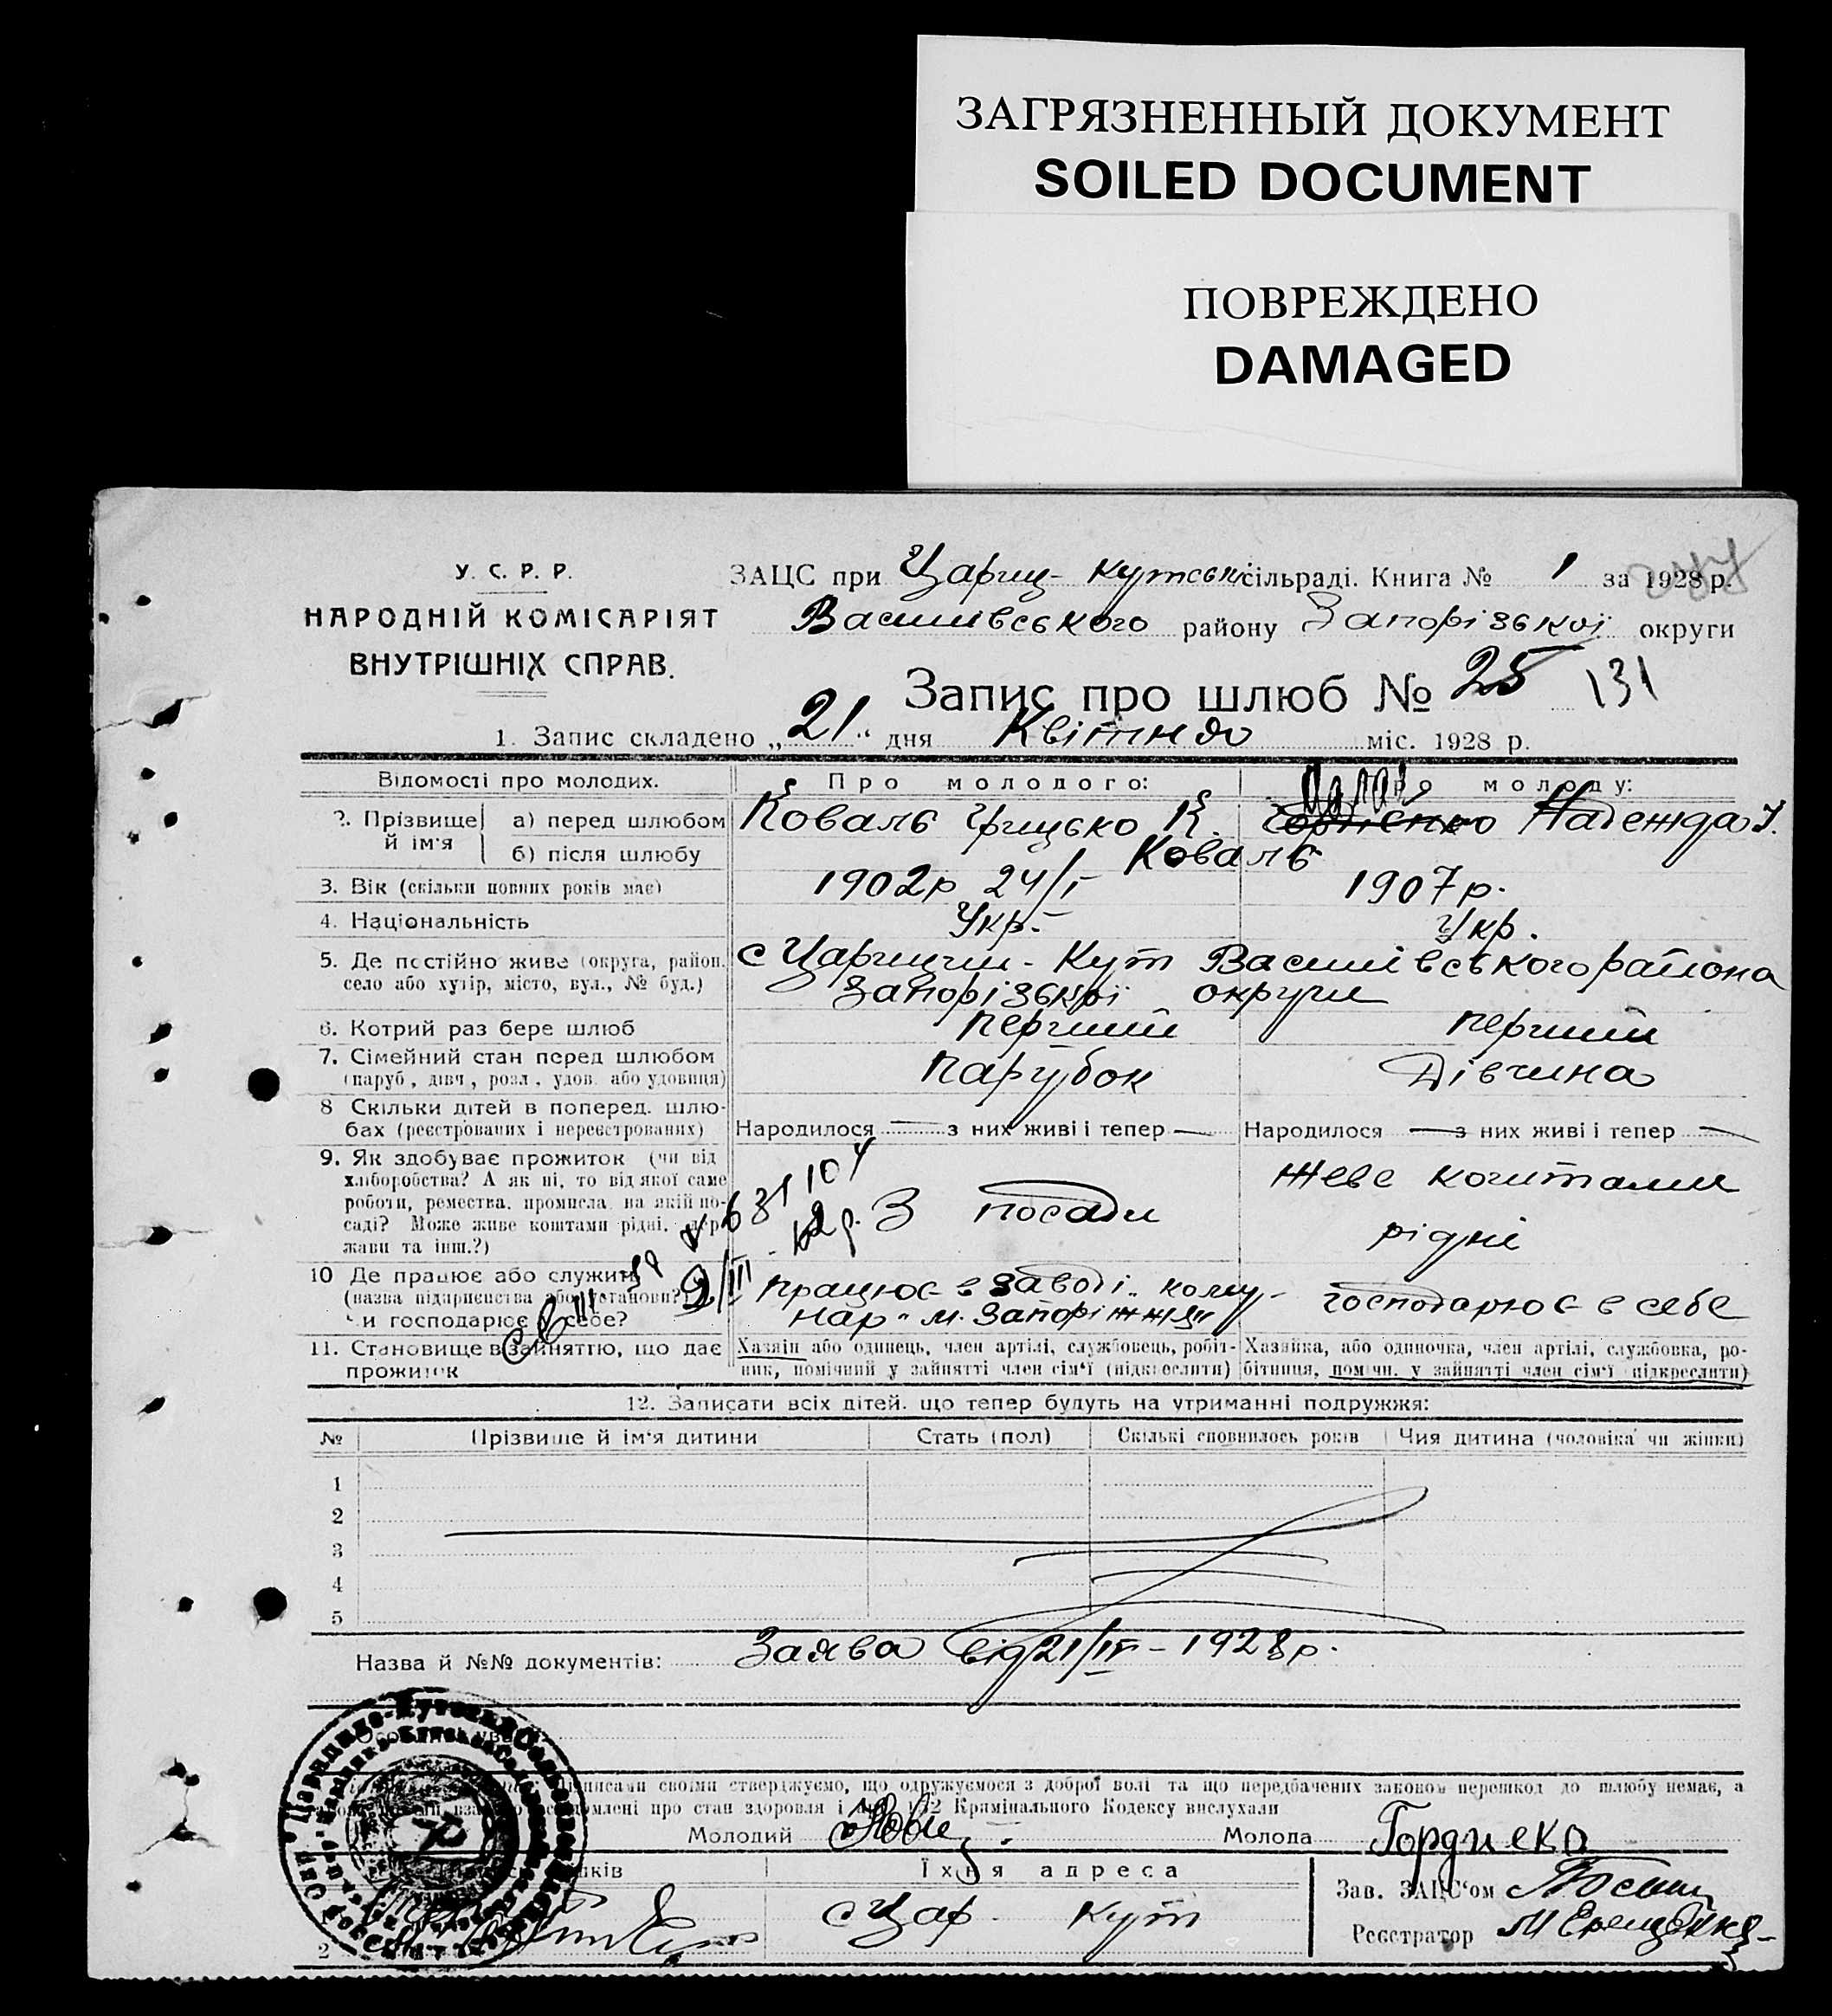 ЗАГРЯЗНЕННЫЙ ДОКУМЕНТ
SOILED DOCUMENT
ПОВРЕЖДЕНО
DAMAGED
У. С. Р. Р.
НАРОДНІЙ КОМІСАРІЯТ
ВНУТРІШНІХ СПРАВ.
ЗАЦС при Цариц-Кутській сільраді. Книга № 1 за 1928 р.
Василівського району Запорізкої округи
Запис про шлюб № 25 131
1. Запис складено „21“ дня Квітня міс. 1928 р.
Відомості про молодих. Про молодого: Про молоду:
2. Прізвище й ім'я
а) перед шлюбом Коваль Грицько К. Надежда І.
б) після шлюбу Коваль
3. Вік (скільки повних років має) 1902р 24/I 1907р.
4. Національність Укр. Укр.
5. Де постійно живе (округа, район, с Царицин-Кут Василівського района
село або хутір, місто, вул., № буд.) Запорізької округи
6. Котрий раз бере шлюб перший перший
7. Сімейний стан перед шлюбом Парубок Дівчина
(паруб., дівч., розл., удов. або удовиця)
8 Скільки дітей в поперед. шлю-
бах (реєстрованих і нереєстрованих) Народилося — з них живі і тепер — Народилося — з них живі і тепер —
9. Як здобуває прожиток (чи від
хліборобства? А як ні, то від якої саме
роботи, ремества, промисла, на якій по-
саді? Може живе коштами рідні, дер-
жави та інш.?)
З посади
Живе коштами
рідні
10 Де працює або служить
(назва підприємства або установи?)
Чи господарює у себе?
працює в заводі „кому-
нар“ м. Запоріжжя
господарює в себе
11. Становище в зайняттю, що дає
прожиток
Хазяїн або одинець, член артілі, службовець, робіт-
ник, помічний у зайнятті член сім'ї (підкреслити)
Хазяйка, або одиночка, член артілі, службовка, ро-
бітниця, помічн. у зайнятті член сім'ї (підкреслити)
12. Записати всіх дітей, що тепер будуть на утриманні подружжя:
№ Прізвище й ім'я дитини Стать (пол) Скількі сповнилось років Чия дитина (чоловіка чи жінки)
1
2
3
4
5
Назва й №№ документів: Заява від 21/IV-1928р.
підписами своїми стверджуємо, що одружуємося з доброї волі та що передбачених законом перешкод до шлюбу немає, а
про стан здоровля і 152 Кримінального Кодексу вислухали
Молодий Молода Гордиеко
Їхня адреса
с Цар. Кут
Зав. ЗАЦС'ом
Реєстратор
2